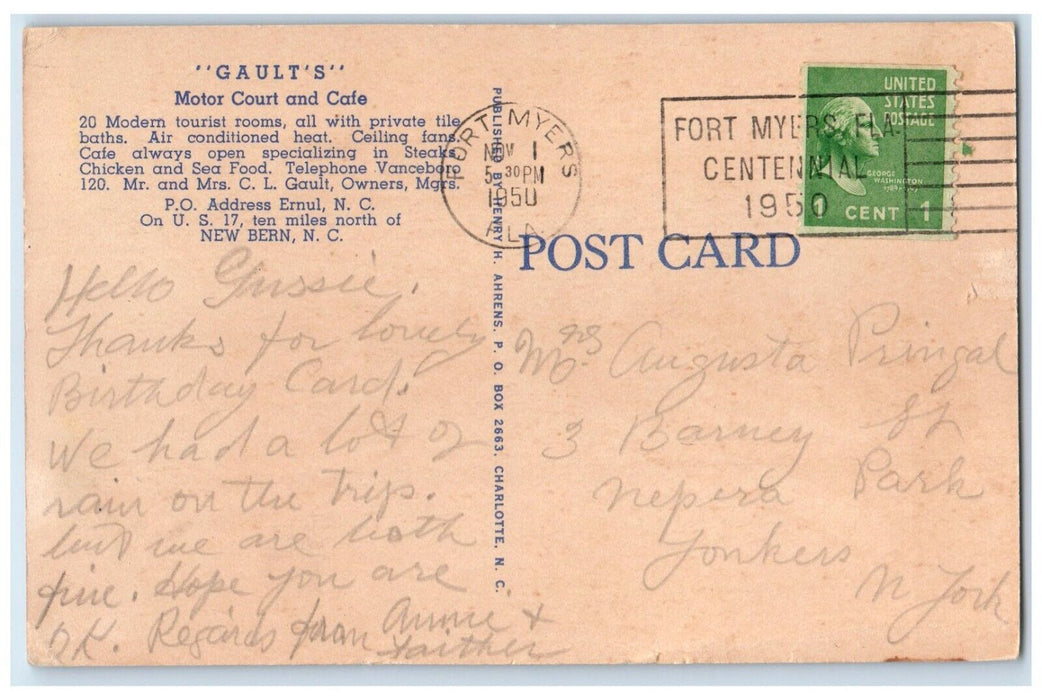 "GAULT'S"
Motor Court and Cafe
20 Modern tourist rooms, all with private tile
baths. Air conditioned heat. Ceiling fans.
Cafe always open specializing in Steaks
Chicken and Sea Food. Telephone Vanceboro
120. Mr. and Mrs. C. L. Gault, Owners, Mgrs.
P.O. Address Ernul, N. C.
On U. S. 17, ten miles north of
NEW BERN, N. C.
Hello Gussie.
Thanks for lovely
Birthday Card.
We had a lot of
rain on the trip.
but we are both
fine. Hope you are
OK. Regards from Annie &
PUBLISHED BY HENRY H. AHRENS. P. O. BOX 2663. CHARLOTTE, N. C.
FORT MYERS
NOV 1
5 30 PM
1950
FLA.
FORT MYERS, FLA.
CENTENNIAL
1950
UNITED
STATES
POSTAGE
GEORGE
WASHINGTON
1789-1797
1 CENT 1
POST CARD
Mrs Augusta Pringal
3 Barney St
Nepera Park
Yonkers
N York